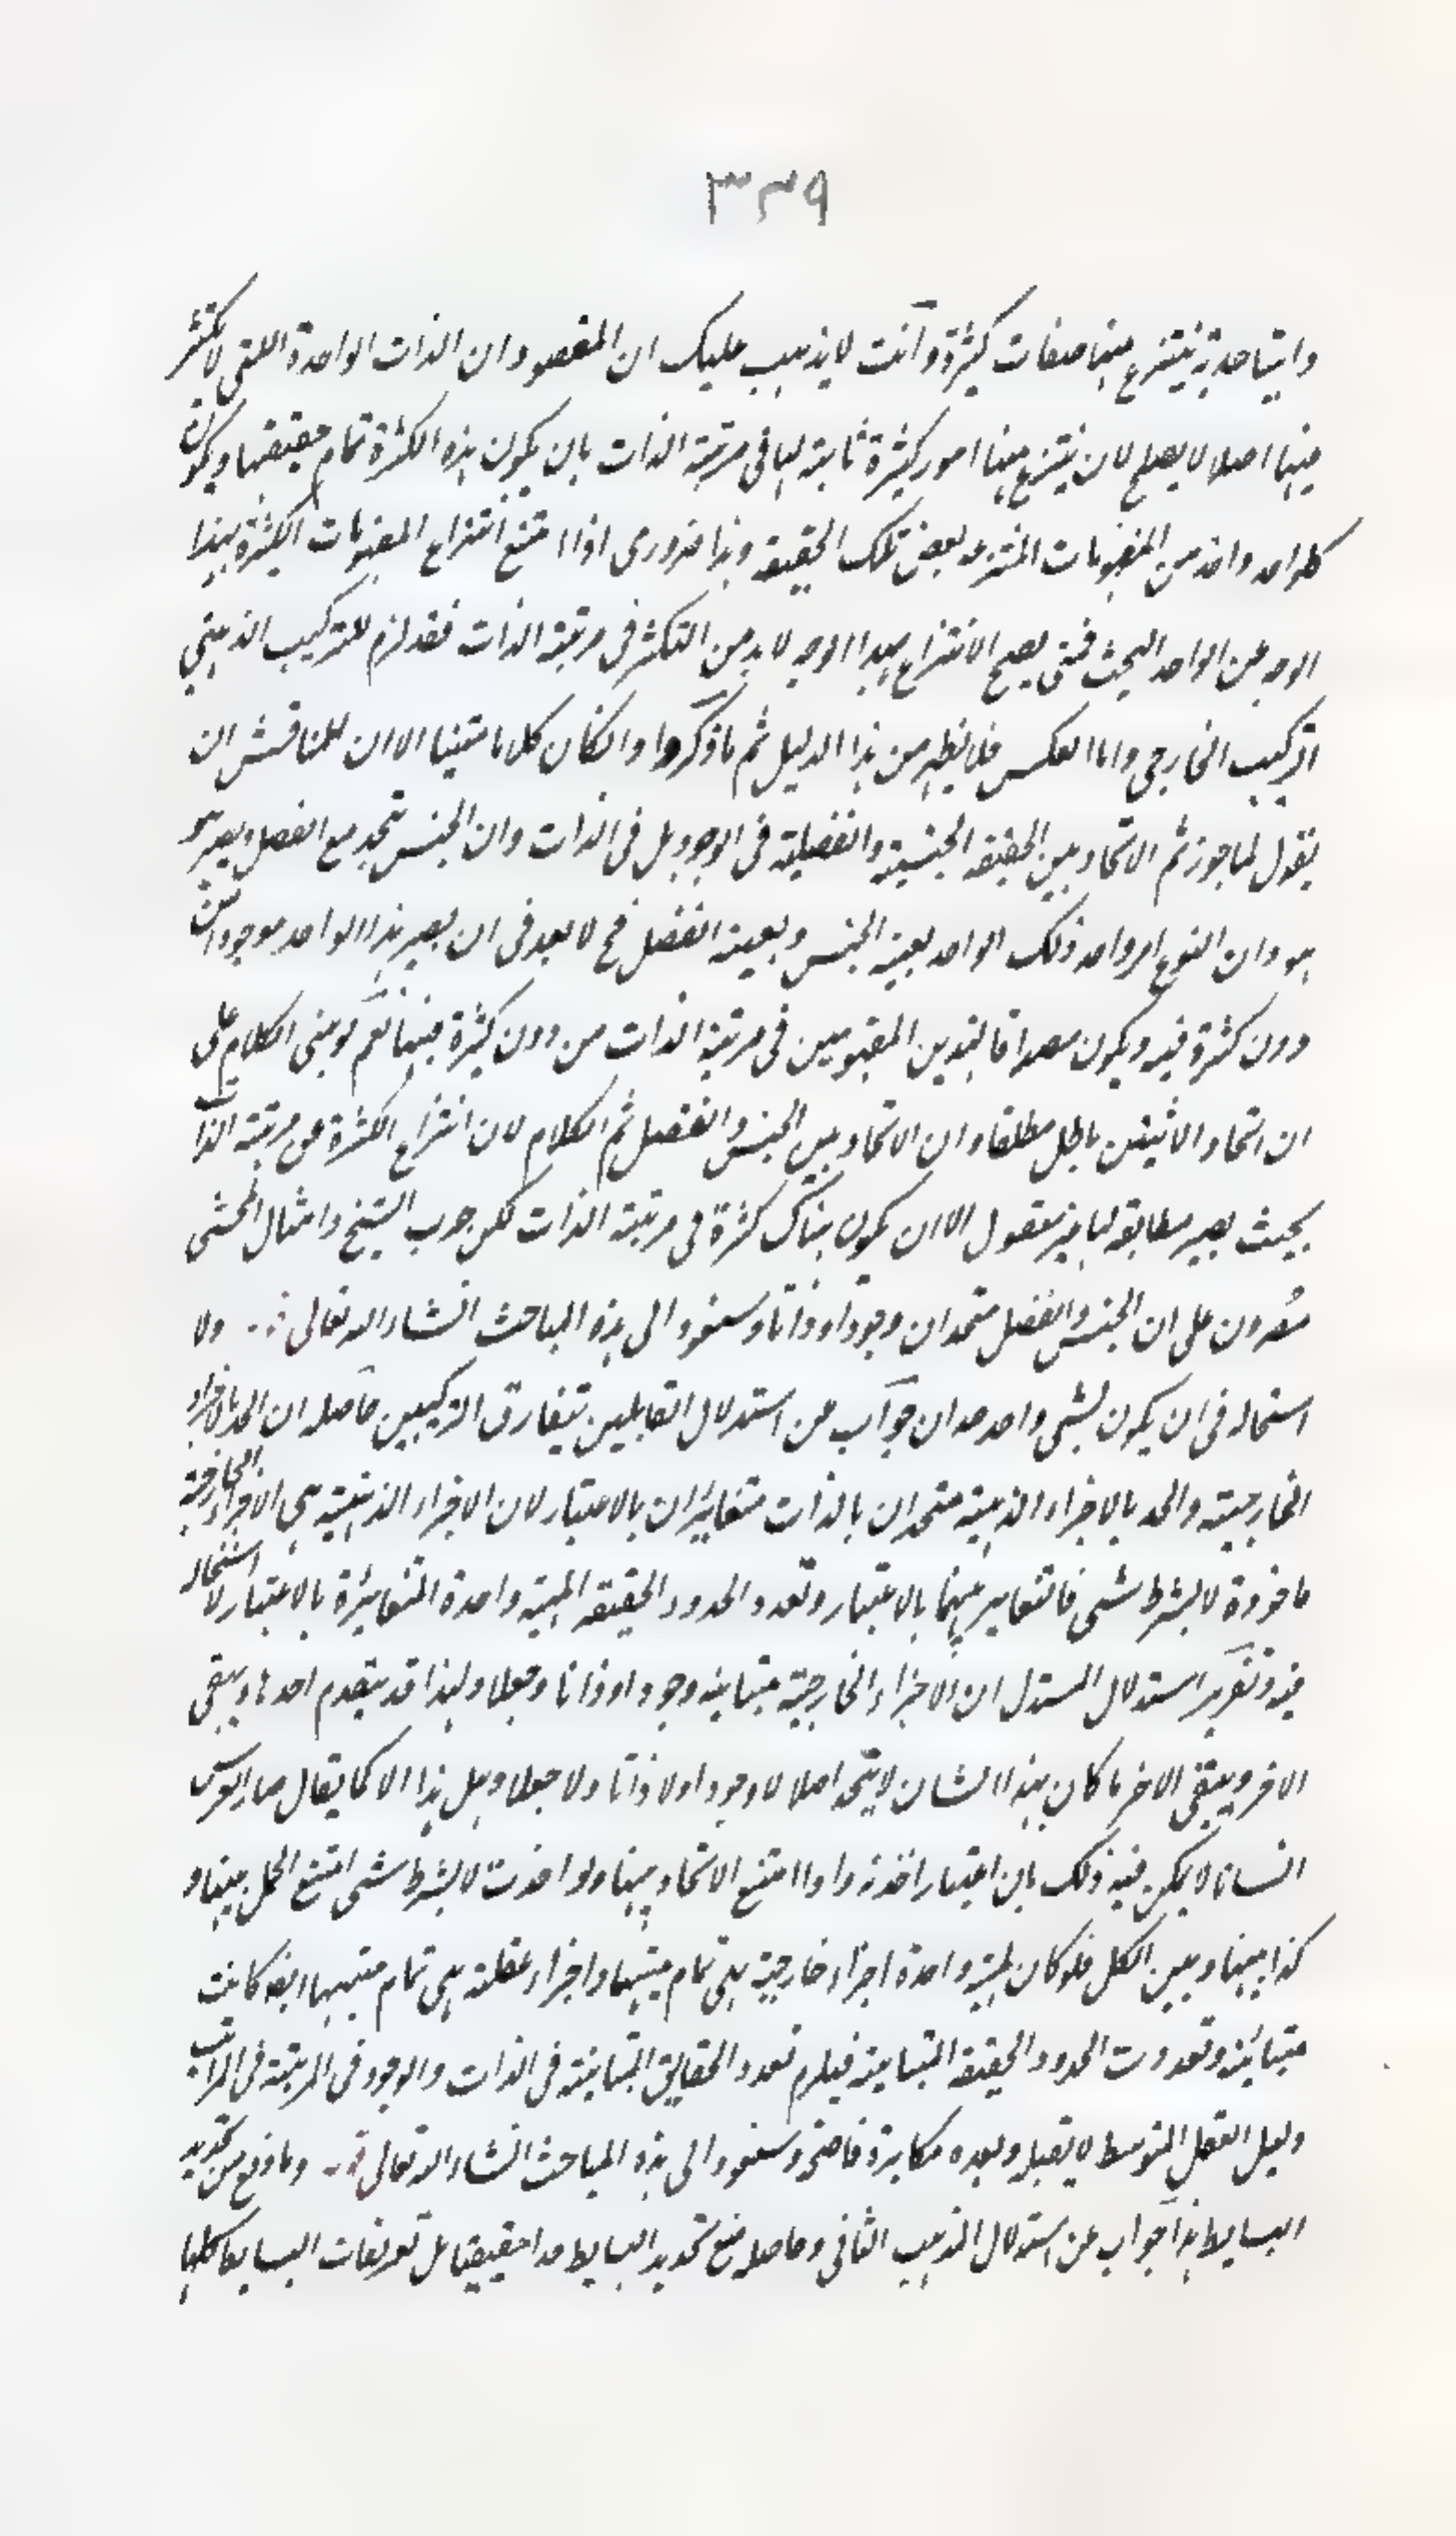 ٣٣٩
واثنا حدية ينتزع عنها صفات كثيرة وانت لا يذهب عليك ان المقصود ان الذات الواحدة التي لا تكثر
فيها اصلا لا يصلح لان ينتزع عنها امور كثيرة ثابتة لها في مرتبة الذات بان يكون هذه الكثرة تمام حقيقتها ويكون
كل واحد واحد من المفهومات المنتزعة بعض تلك الحقيقة وهذا ضروري اذا امتنع انتزاع المفهومات الكثيرة بهذا
الوجه عن الواحد البحت فمتى يصح الانتزاع بهذا الوجه لا بد من التكثر في مرتبة الذات فقد لزم للتركيب الذهني
التركيب الخارجي واما العكس فلا يظهر من هذا الدليل ثم ما ذكروا وان كان كلاما متينا الا ان للمناقش ان
يقول لما جوزتم الاتحاد بين الحقيقة الجنسية والفصلية في الوجود بل في الذات وان الجنس يتحد مع الفصل ويصير هو
هو وان النوع امر واحد ذلك الواحد بعينه الجنس وبعينه الفصل فح لا بعد في ان يصير هذا الواحد موجودا من
دون كثرة فيه ويكون مصداقا لهذين المفهومين في مرتبة الذات من دون كثرة فيها نعم لو بنى الكلام على
ان اتحاد الاثنين باطل مطلقا وان الاتحاد بين الجنس والفصل ثم الكلام لان انتزاع الكثرة عن مرتبة الذات
بحيث يصير مطابقة لها غير معقول الا ان يكون هناك كثرة في مرتبة الذات لكن حزب الشيخ وامثال المحشي
مصرون على ان الجنس والفصل متحدان وجودا وذاتا وسنعود الى هذه المباحث انشاء الله تعالى ولا
استحالة في ان يكون لشئ واحد حدان جواب عن استدلال القائلين بتفارق التركيبين حاصله ان الحد بالاجزاء
الخارجية والحد بالاجزاء الذهنية متحدان بالذات متغايران بالاعتبار لان الاجزاء الذهنية هي الاجزاء الخارجية
ماخوذة لا بشرط شئ فالتغاير بينهما بالاعتبار وتعدد الحدود الحقيقة المهية واحدة المتغايرة بالاعتبار لا استحالة
فيه وتقرير استدلال المستدل ان الاجزاء الخارجية متباينة وجودا وذاتا وجعلا ولهذا قد يتقدم احدها ويبقى
الاخر ويبقى الاخر ما كان بهذا الشان لا يتحد اصلا لا وجودا ولا ذاتا ولا جعلا وهل هذا الا كما يقال صار الفرس
انسانا لا يمكن فيه ذلك بان اعتبار اخذته واذا امتنع الاتحاد بينها ولو اخذت لا بشرط شئ امتنع الحمل بينها و
كذا بينها وبين الكل فلو كان لمهية واحدة اجزاء خارجية هي تمام مهيتها واجزاء عقلية هي تمام مهيتها ايضا كانت
متباينة وتعددت الحدود الحقيقة المتباينة فيلزم تعدد الحقايق المتباينة في الذات والوجود في المرتبة في المراتب
ولعل العقل المتوسط لا يقبله ويعده مكابرة فاضحة وسنعود الى هذه المباحث انشاء الله تعالى وما وقع من تحديد
البسايط هذا جواب عن استدلال المذهب الثاني وحاصله منع تحديد البسايط حدا حقيقيا بل تعريفات البسايط كلها